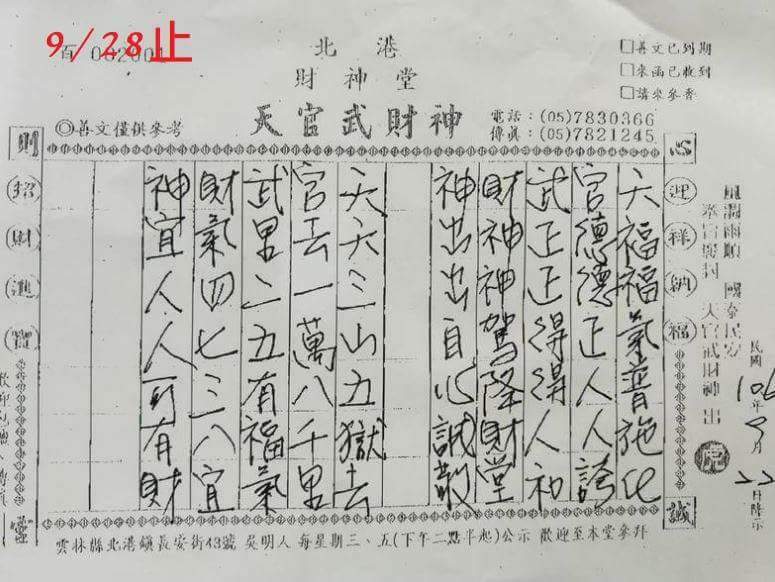 9/28止
北港
財神堂
天官武財神
電話:(05)7830366
傳真:(05)7821245
□善文已到期
□來函已收到
□請來參香
◎善文僅供參考
心
迎祥納福
誠
則
招財進寶
靈
風調雨順 國泰民安
天官武財神出
民國106年9月22日降示
天福福氣普施化
官德德正人人誇
武正正得得人和
財神神駕降財堂
神出出自心誠敬
天六三山五獄去
官去一萬八千里
武里二五有福氣
財氣四七三八宜
神宜人人可有財
雲林縣北港鎮長安街43號 吳明人 每星期三、五(下午二點半起)公示 歡迎至本堂參拜